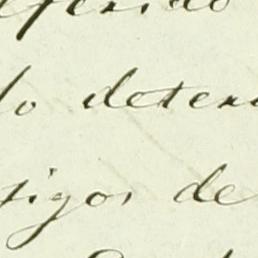 ferido
lo deter
tigos de